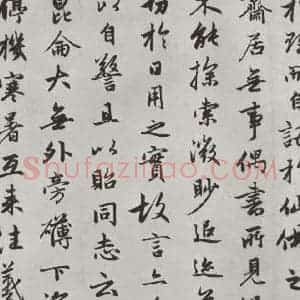 而自託於仙佛之
齋居無事偶書所見
不能探索微眇追迹
切於日用之實故言亦
以自警且以貽同志云
崑侖大無外旁礴下深
停機寒暑互来往羲
Shufaziliao.com